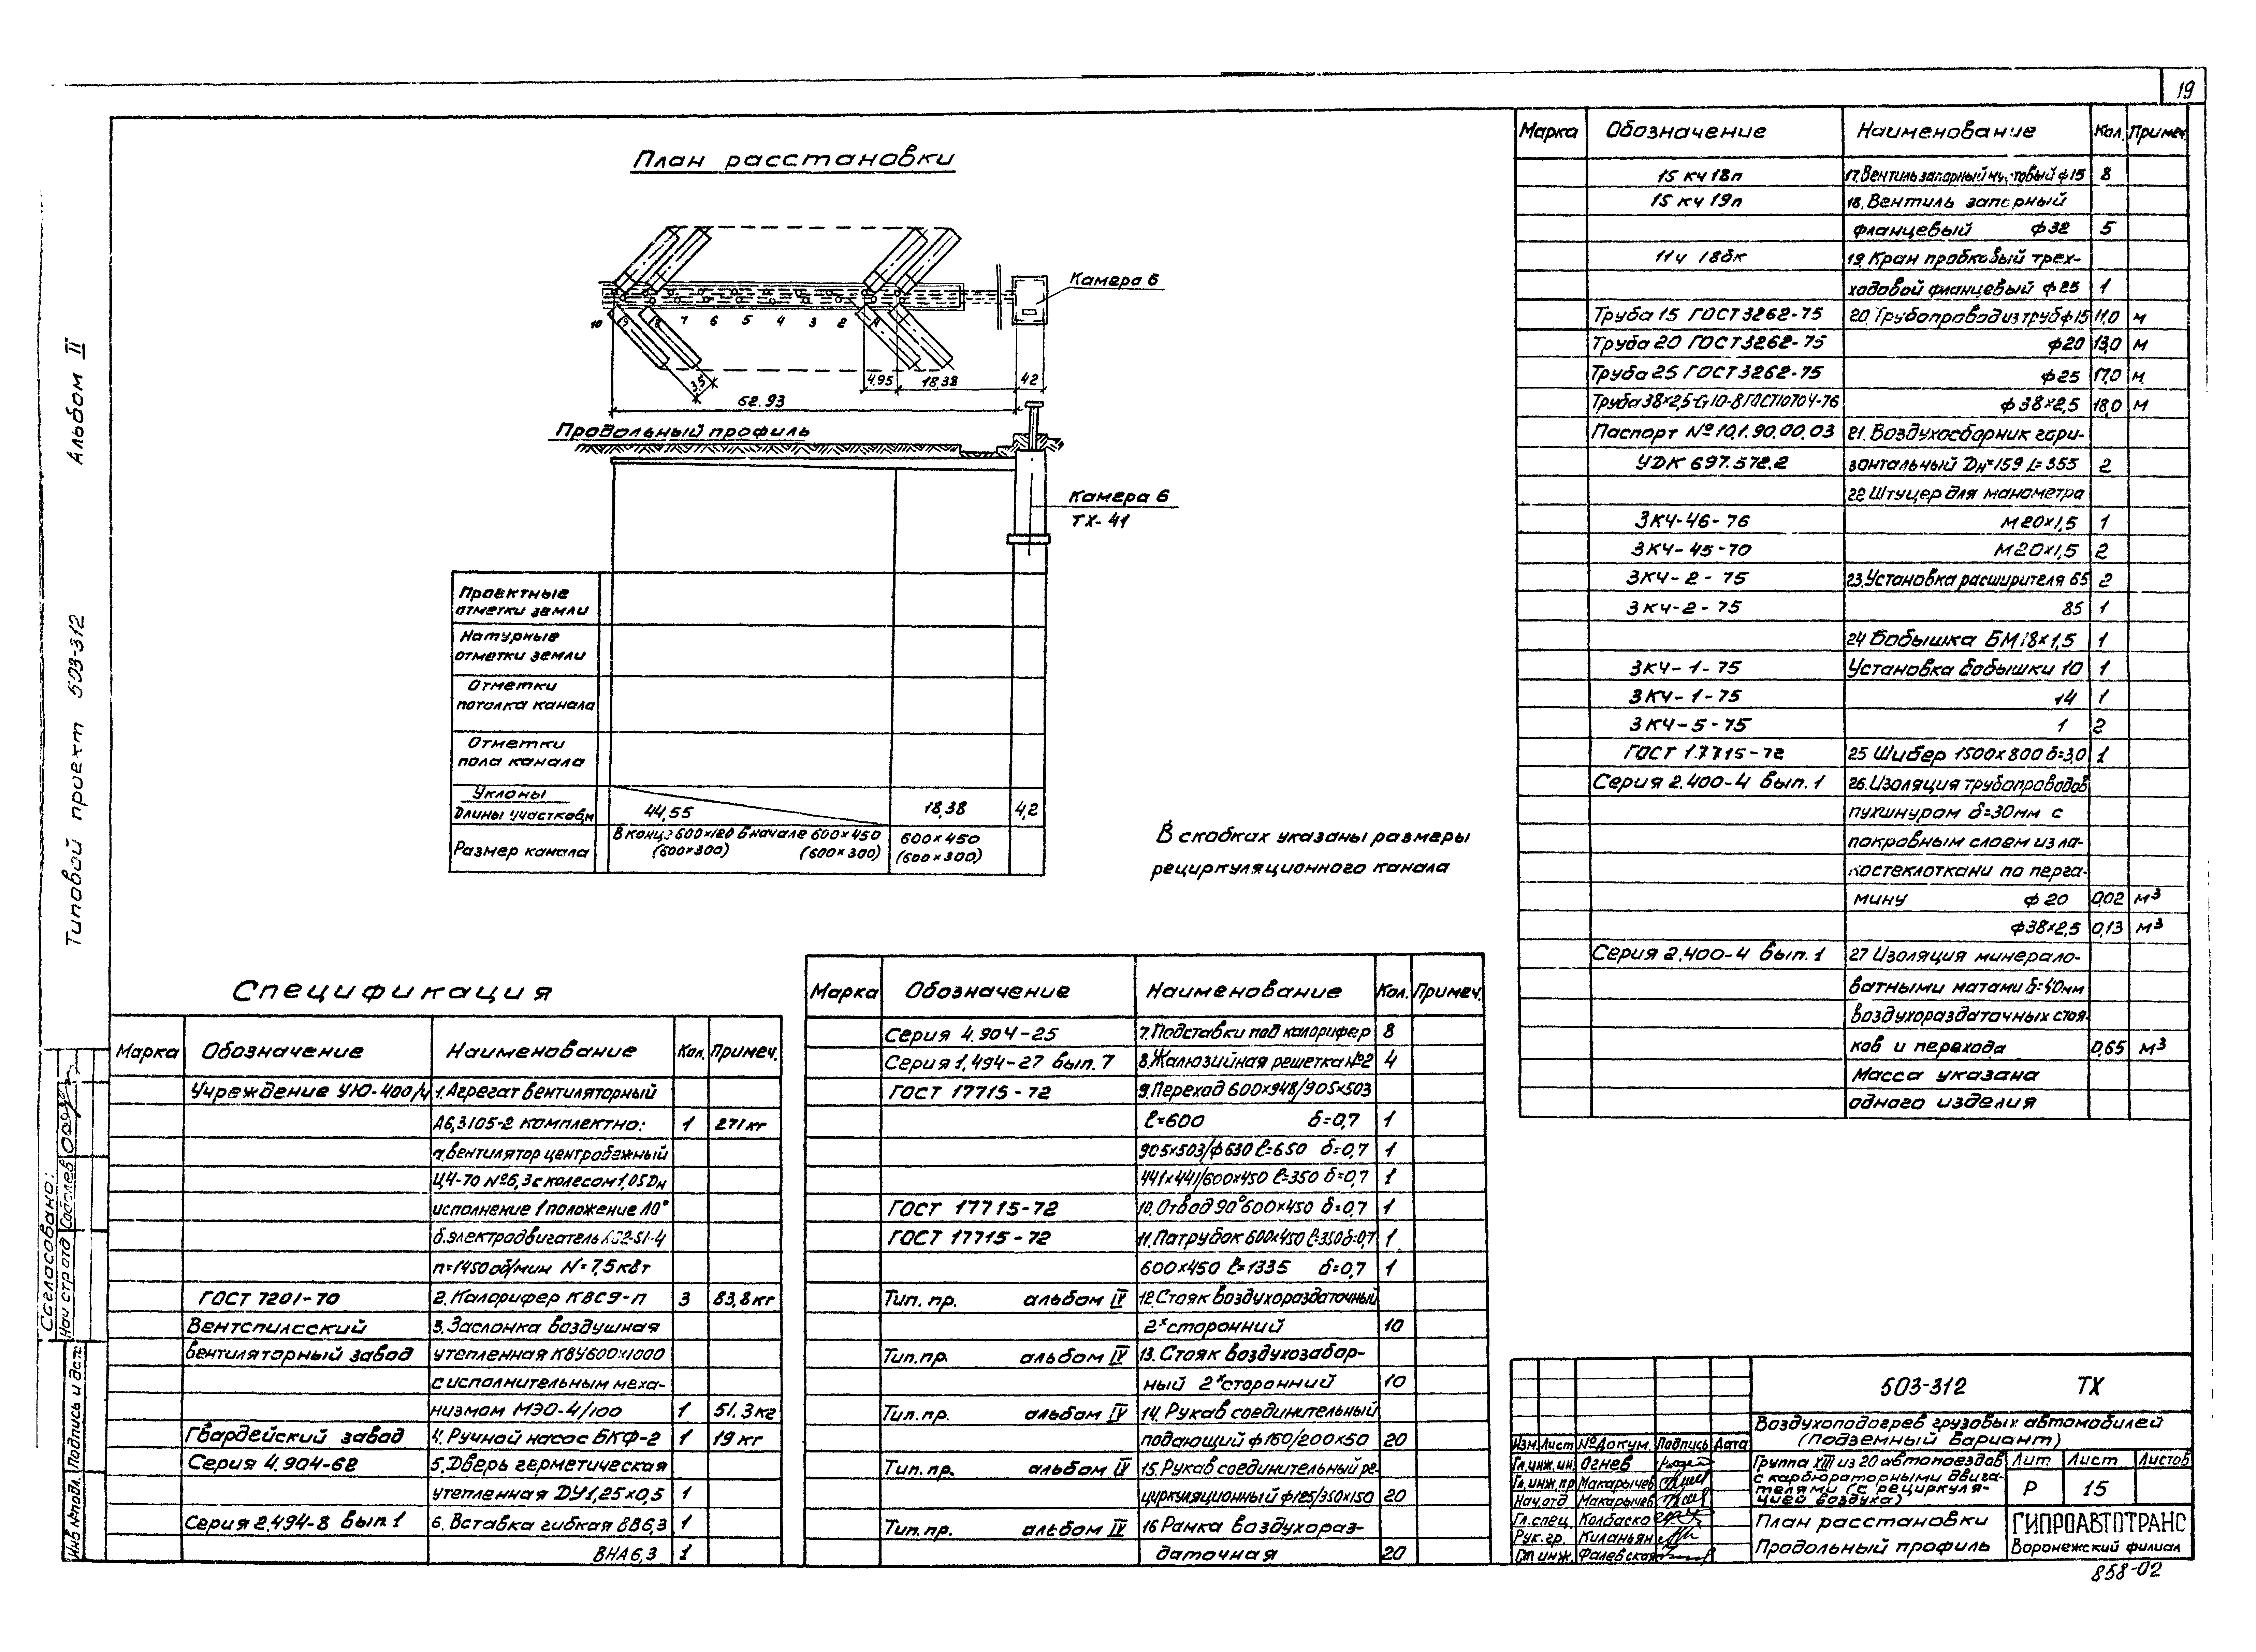 19
План расстановки
Камера 6
10 9 8 7 6 5 4 3 2 1
3,5
4,95
18.38
4,2
62.93
Продольный профиль
Камера 6
ТХ-41
Проектные отметки земли
Натурные отметки земли
Отметки потолка канала
Отметки пола канала
Уклоны
Длины участков,м 44,55 18,38 4,2
Размер канала
В конце 600×120 В начале 600×450 600×450
(600×300) (600×300) (600×300)
В скобках указаны размеры
рециркуляционного канала
Альбом II
Типовой проект 503-312
Согласовано:
Нач стр отд
Инв № подл. Подпись и дата
Спецификация
Марка Обозначение Наименование Кол. Примеч.
Учреждение УЮ-400/4 1. Агрегат вентиляторный
А6,3105-2 комплектно: 1 271 кг
а. вентилятор центробежный
Ц4-70 №6,3 с колесом 1,05Dн
исполнение 1 положение Л0°
б. электродвигатель А02-51-4
n=1450 об/мин N=7,5 кВт
ГОСТ 7201-70 2. Калорифер КВС9-п 3 83,8 кг
Вентспилсский 3. Заслонка воздушная
вентиляторный завод утепленная КВУ600×1000
с исполнительным меха-
низмом МЭО-4/100 1 51.3 кг
Гвардейский завод 4. Ручной насос БКФ-2 1 19 кг
Серия 4.904-62 5. Дверь герметическая
утепленная ДУ1,25×0,5 1
Серия 2.494-8 вып.1 6. Вставка гибкая ВВ6,3 1
ВНА6,3 1
Марка Обозначение Наименование Кол. Примеч.
Серия 4.904-25 7. Подставки под калорифер 8
Серия 1.494-27 вып. 7 8. Жалюзийная решетка №2 4
ГОСТ 17715-72 9. Переход 600×948/905×503
ℓ=600 δ=0,7 1
905×503/ф630 ℓ=650 δ=0,7 1
441×441/600×450 ℓ=350 δ=0,7 1
ГОСТ 17715-72 10. Отвод 90° 600×450 δ=0,7 1
ГОСТ 17715-72 11. Патрубок 600×450 ℓ=350 δ=0,7 1
600×450 ℓ=1335 δ=0,7 1
Тип. пр. альбом IV 12. Стояк воздухораздаточный
2х сторонний 10
Тип. пр. альбом IV 13. Стояк воздухозабор-
ный 2х сторонний 10
Тип. пр. альбом IV 14. Рукав соединительный
подающий ф160/200×50 20
Тип. пр. альбом IV 15. Рукав соединительный ре-
циркуляционный ф125/350×150 20
Тип. пр. альбом IV 16 Рамка воздухораз-
даточная 20
Марка Обозначение Наименование Кол. Примеч.
15 кч 18п 17. Вентиль запорный муфтовый ф15 8
15 кч 19п 18. Вентиль запорный
фланцевый ф32 5
11ч 18бк 19. Кран пробковый трех-
ходовой фланцевый ф25 1
Труба 15 ГОСТ 3262-75 20. Трубопровод из труб ф15 11,0 м
Труба 20 ГОСТ 3262-75 ф20 13,0 м
Труба 25 ГОСТ 3262-75 ф25 17,0 м
Труба 38×2,5-Ст10-В ГОСТ 10704-76 ф38×2,5 18,0 м
Паспорт № 10.1.90.00.03 21. Воздухосборник гори-
УДК 697.578.2 зонтальный Dн=159 L=355 2
22 Штуцер для манометра
ЗКЧ-46-76 М20×1,5 1
ЗКЧ-45-70 М20×1,5 2
ЗКЧ-2-75 23. Установка расширителя 65 2
ЗКЧ-2-75 85 1
24 Бобышка БМ18×1,5 1
ЗКЧ-1-75 Установка бобышки 10 1
ЗКЧ-1-75 14 1
ЗКЧ-5-75 1 2
ГОСТ 17715-72 25 Шибер 1500×800 δ=3,0 1
Серия 2.400-4 вып. 1 26. Изоляция трубопроводов
пухшнуром δ=30мм с
покровным слоем из ла-
костеклоткани по перга-
мину ф 20 0,02 м³
ф38×2,5 0,13 м³
Серия 2.400-4 вып. 1 27 Изоляция минерало-
ватными матами δ=40мм
воздухораздаточных стоя-
ков и перехода 0,65 м³
Масса указана
одного изделия
503-312 ТХ
Воздухоподогрев грузовых автомобилей
(подземный вариант)
Изм. Лист № Докум. Подпись Дата
Гл.инж.ин. Огнев
Гл.инж.пр Макарычев
Нач.отд Макарычев
Гл.спец. Колбаско
Рук.гр. Киланьян
Ст инж. Фалевская
Группа XIII из 20 автопоездов
с карбюраторными двига-
телями (с рециркуля-
цией воздуха)
Лит. Лист Листов
Р 15
План расстановки
Продольный профиль
ГИПРОАВТОТРАНС
Воронежский филиал
858-02